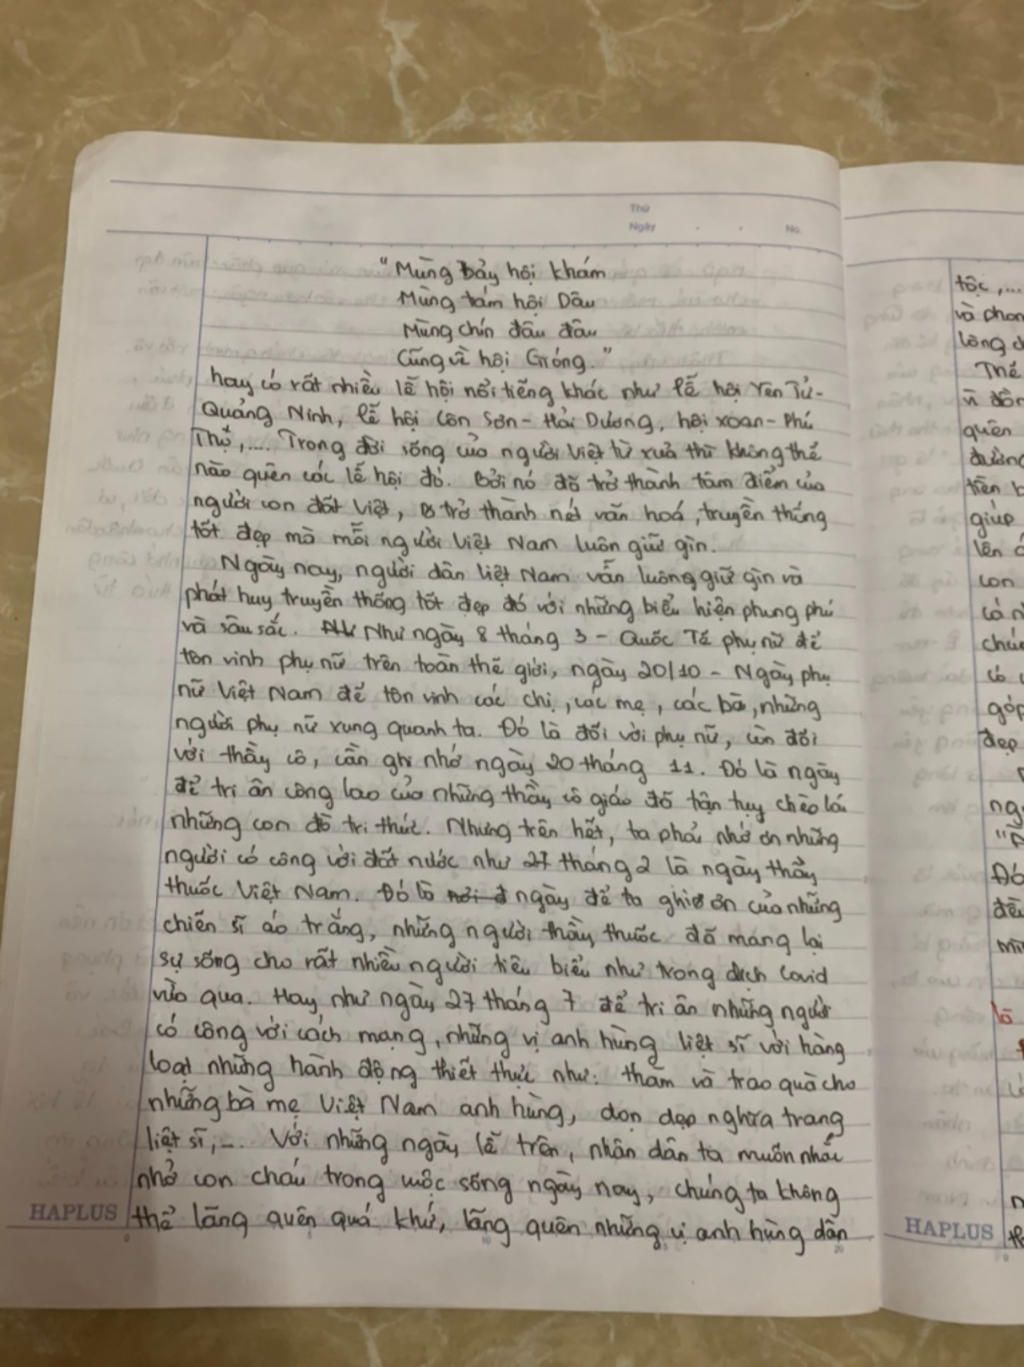 Thứ
Ngày
No.
"Mùng bảy hội khám
Mùng tám hội Dâu
Mùng chín đâu đâu
Cũng về hội Gióng."
hay có rất nhiều lễ hội nổi tiếng khác như lễ hội Yên Tử-
Quảng Ninh, lễ hội Côn Sơn - Hải Dương, hội xoan - Phú
Thọ,.... Trong đời sống của người Việt từ xưa thì không thể
nào quên các lễ hội đó. Bởi nó đã trở thành tâm điểm của
người con đất Việt, trở thành nét văn hoá, truyền thống
tốt đẹp mà mỗi người Việt Nam luôn giữ gìn.
Ngày nay, người dân Việt Nam vẫn luông giữ gìn và
phát huy truyền thống tốt đẹp đó với những biểu hiện phung phú
và sâu sắc. Như ngày 8 tháng 3 - Quốc Tế phụ nữ để
tôn vinh phụ nữ trên toàn thế giới, ngày 20/10 - Ngày phụ
nữ Việt Nam để tôn vinh các chị, các mẹ, các bà, những
người phụ nữ xung quanh ta. Đó là đối với phụ nữ, còn đối
với thầy cô, cần ghi nhớ ngày 20 tháng 11. Đó là ngày
để tri ân công lao của những thầy cô giáo đã tận tụy chèo lái
những con đò tri thức. Nhưng trên hết, ta phải nhớ ơn những
người có công với đất nước như 27 tháng 2 là ngày thầy
thuốc Việt Nam. Đó là ngày để ta ghi ơn của những
chiến sĩ áo trắng, những người thầy thuốc đã mang lại
sự sống cho rất nhiều người tiêu biểu như trong dịch Covid
vừa qua. Hay như ngày 27 tháng 7 để tri ân những người
có công với cách mạng, những vị anh hùng liệt sĩ với hàng
loạt những hành động thiết thực như: thăm và trao quà cho
những bà mẹ Việt Nam anh hùng, dọn dẹp nghĩa trang
liệt sĩ,... Với những ngày lễ trên, nhân dân ta muốn nhắc
nhở con cháu trong cuộc sống ngày nay, chúng ta không
thể lãng quên quá khứ, lãng quên những vị anh hùng dân
HAPLUS
tộc,...
và phon
lòng
Thế
vì
quên
đường
tiền
giúp
lên
con
cả
chú
có
góp
đẹp
ng
Đó
đều
là
HAPLUS